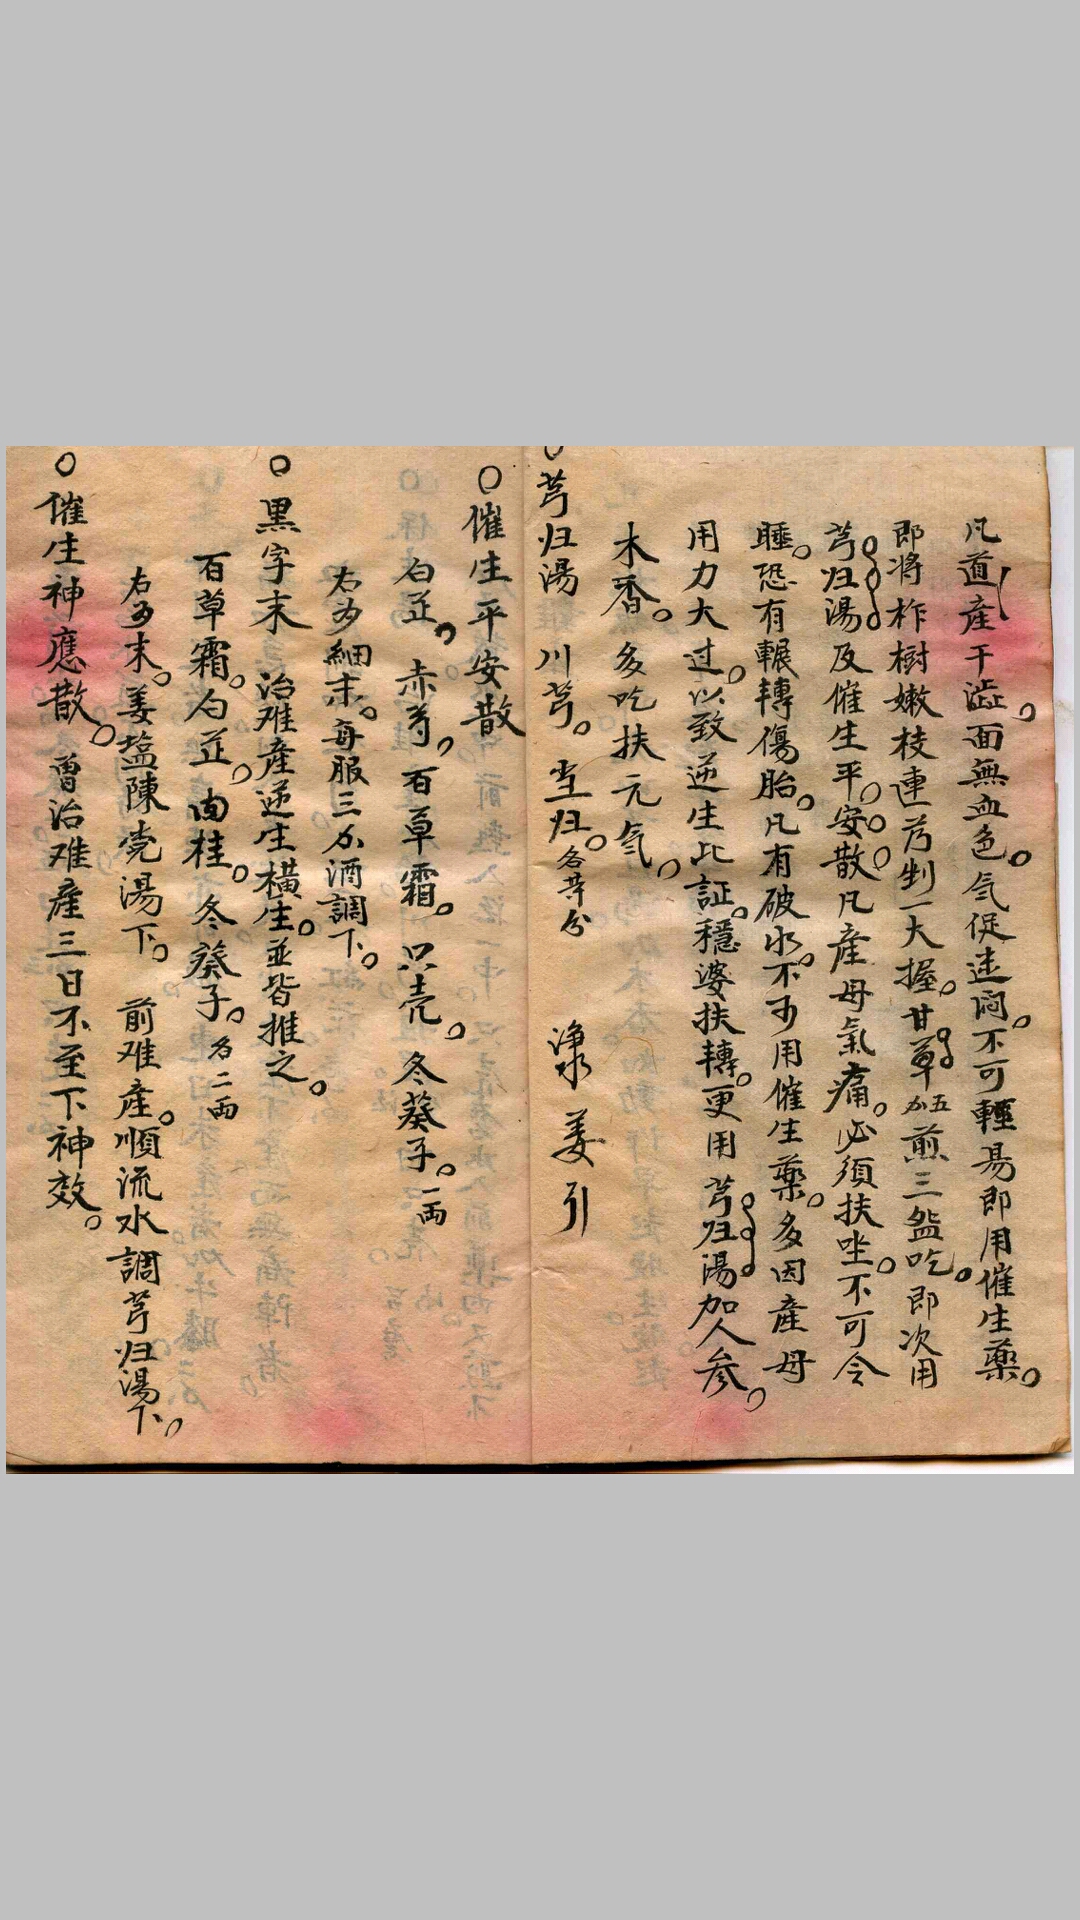 凡道產干澁。面無血色。气促迷悶。不可輕易即用催生藥。
即將柞樹嫩枝連芳剉一大握。甘草五分煎三盌吃。即次用
芎归湯及催生平安散。凡產母氣痛。必須扶坐。不可令
睡。恐有輾轉傷胎。凡有破水。不可用催生藥。多因產母
用力大过。以致逆生此証。穩婆扶轉。更用芎归湯加人參。
木香。多吃扶元气。
○芎归湯 川芎。当归。各等分 淨水 姜引
○催生平安散
白芷。赤芍。百草霜。只壳。冬葵子。一両
右为細末。每服三分酒調下。
○黑字末 治难產逆生橫生。並皆推之。
百草霜。白芷。肉桂。冬葵子。各二両
右为末。姜塩陳壳湯下。前难產。順流水調芎归湯下。
○催生神應散。曾治难產三日不至下神效。